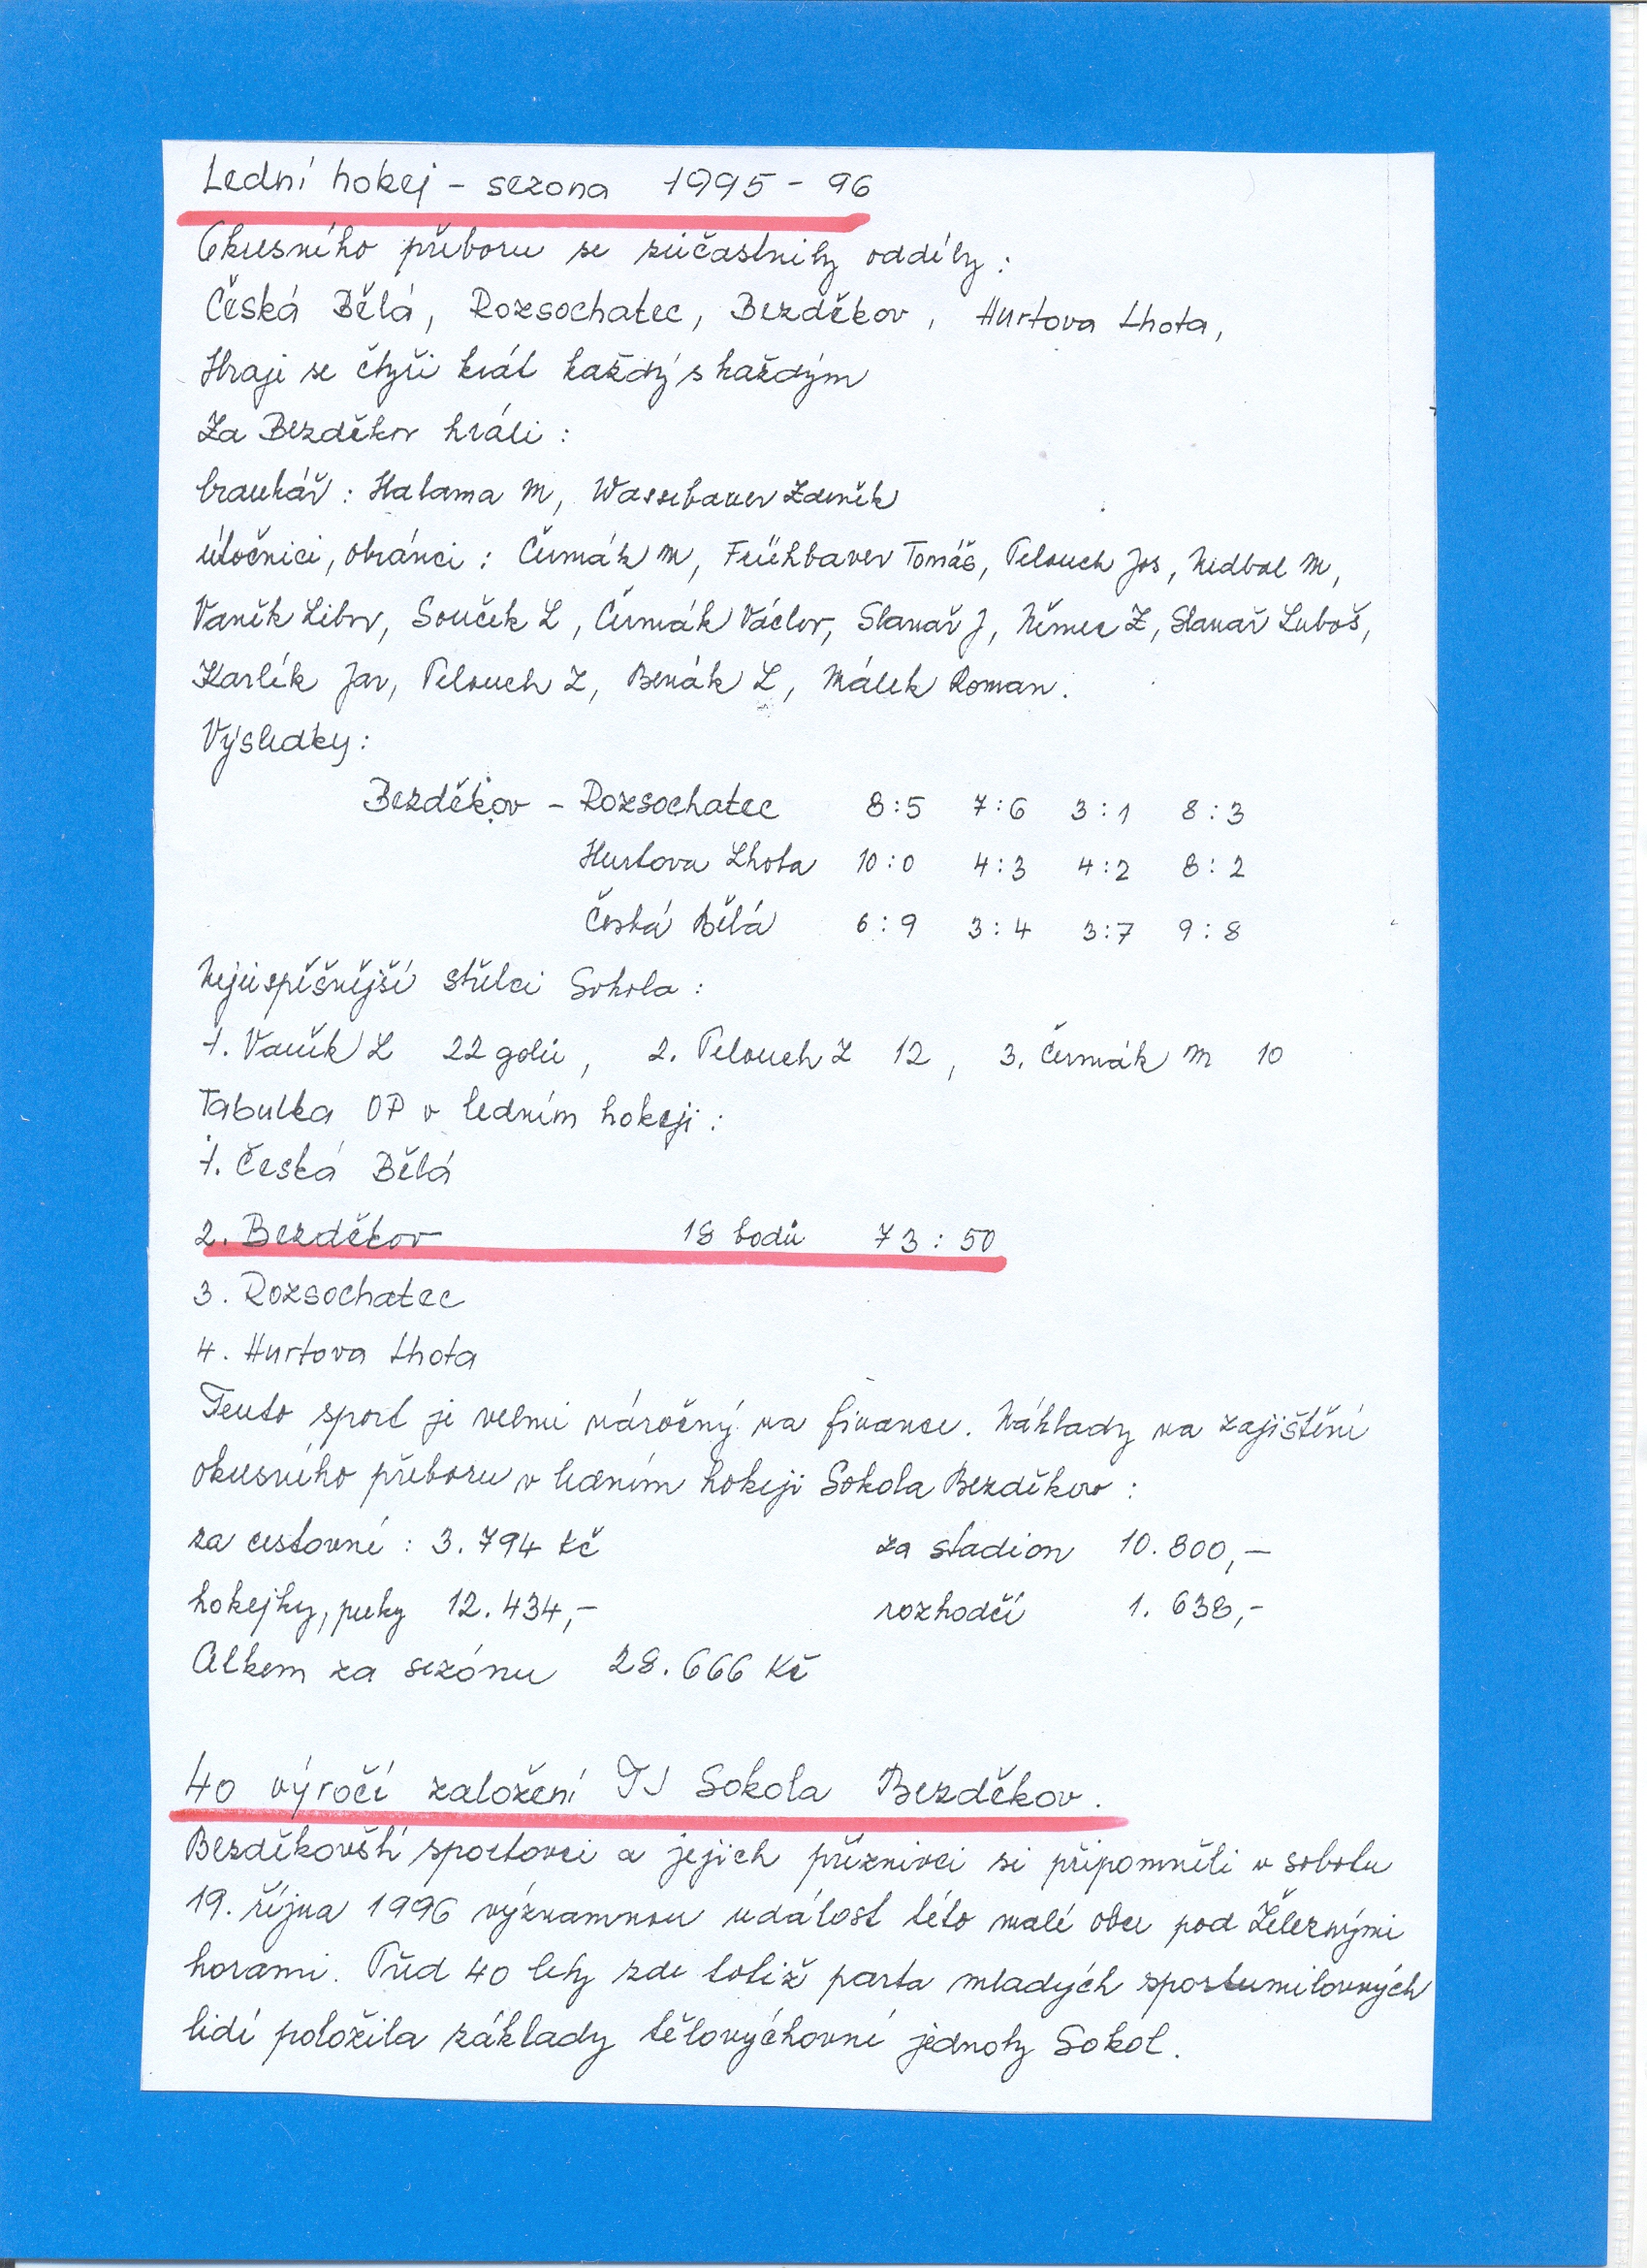 Lední hokej - sezona 1995 - 96
Okresního přeboru se zúčastnily oddíly :
Česká Bělá, Rozsochatec, Bezděkov, Hurtova Lhota,
Hraji se čtyři krát každý s každým
Za Bezděkov hráli :
brankář : Halama M, Wasserbauer Zdeněk
útočnici, obránci : Čermák M, Frühbauer Tomáš, Pelouch Jos, Nedbal M,
Vaněk Libor, Souček L, Čermák Václav, Slanař J, Němec Z, Slanař Luboš,
Karlík Jar, Pelouch Z, Benák L, Málek Roman.
Výsledky :
Bezděkov - Rozsochatec 8:5 7:6 3:1 8:3
Hurtova Lhota 10:0 4:3 4:2 8:2
Česká Bělá 6:9 3:4 3:7 9:8
Nejúspěšnější střelci Sokola :
1. Vaněk L 22 golů, 2. Pelouch Z 12, 3. Čermák M 10
Tabulka OP v ledním hokeji :
1. Česká Bělá
2. Bezděkov 18 bodů 73 : 50
3. Rozsochatec
4. Hurtova Lhota
Tento sport je velmi náročný na finance. Náklady na zajištění
okresního přeboru v ledním hokeji Sokola Bezděkov :
za cestovné : 3.794 Kč za stadion 10.800,-
hokejky, puky 12.434,- rozhodčí 1.638,-
Celkem za sezónu 28.666 Kč
40 výročí založení TJ Sokola Bezděkov.
Bezděkovští sportovci a jejich příznivci si připomněli v sobotu
19. října 1996 významnou událost této malé obce pod Železnými
horami. Před 40 lety zde totiž parta mladých sportumilovných
lidí položila základy tělovýchovné jednoty Sokol.